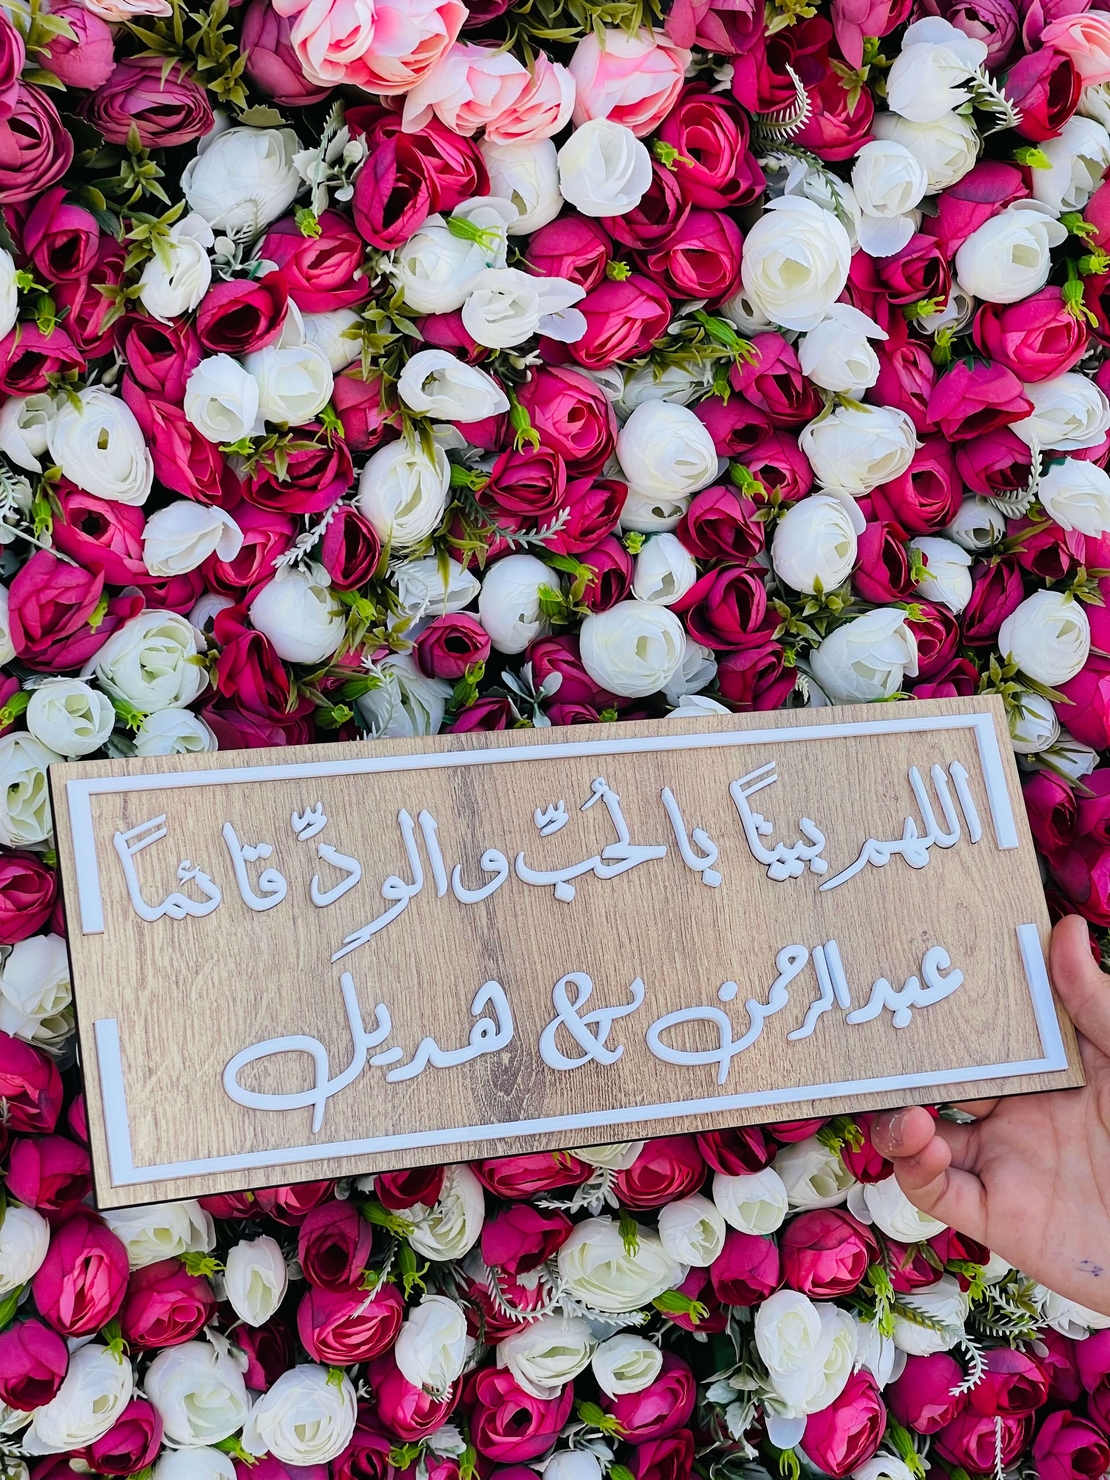 اللهم بيتًا بالحُبِّ والودِّ قائمًا
عبدالرحمن & هديل